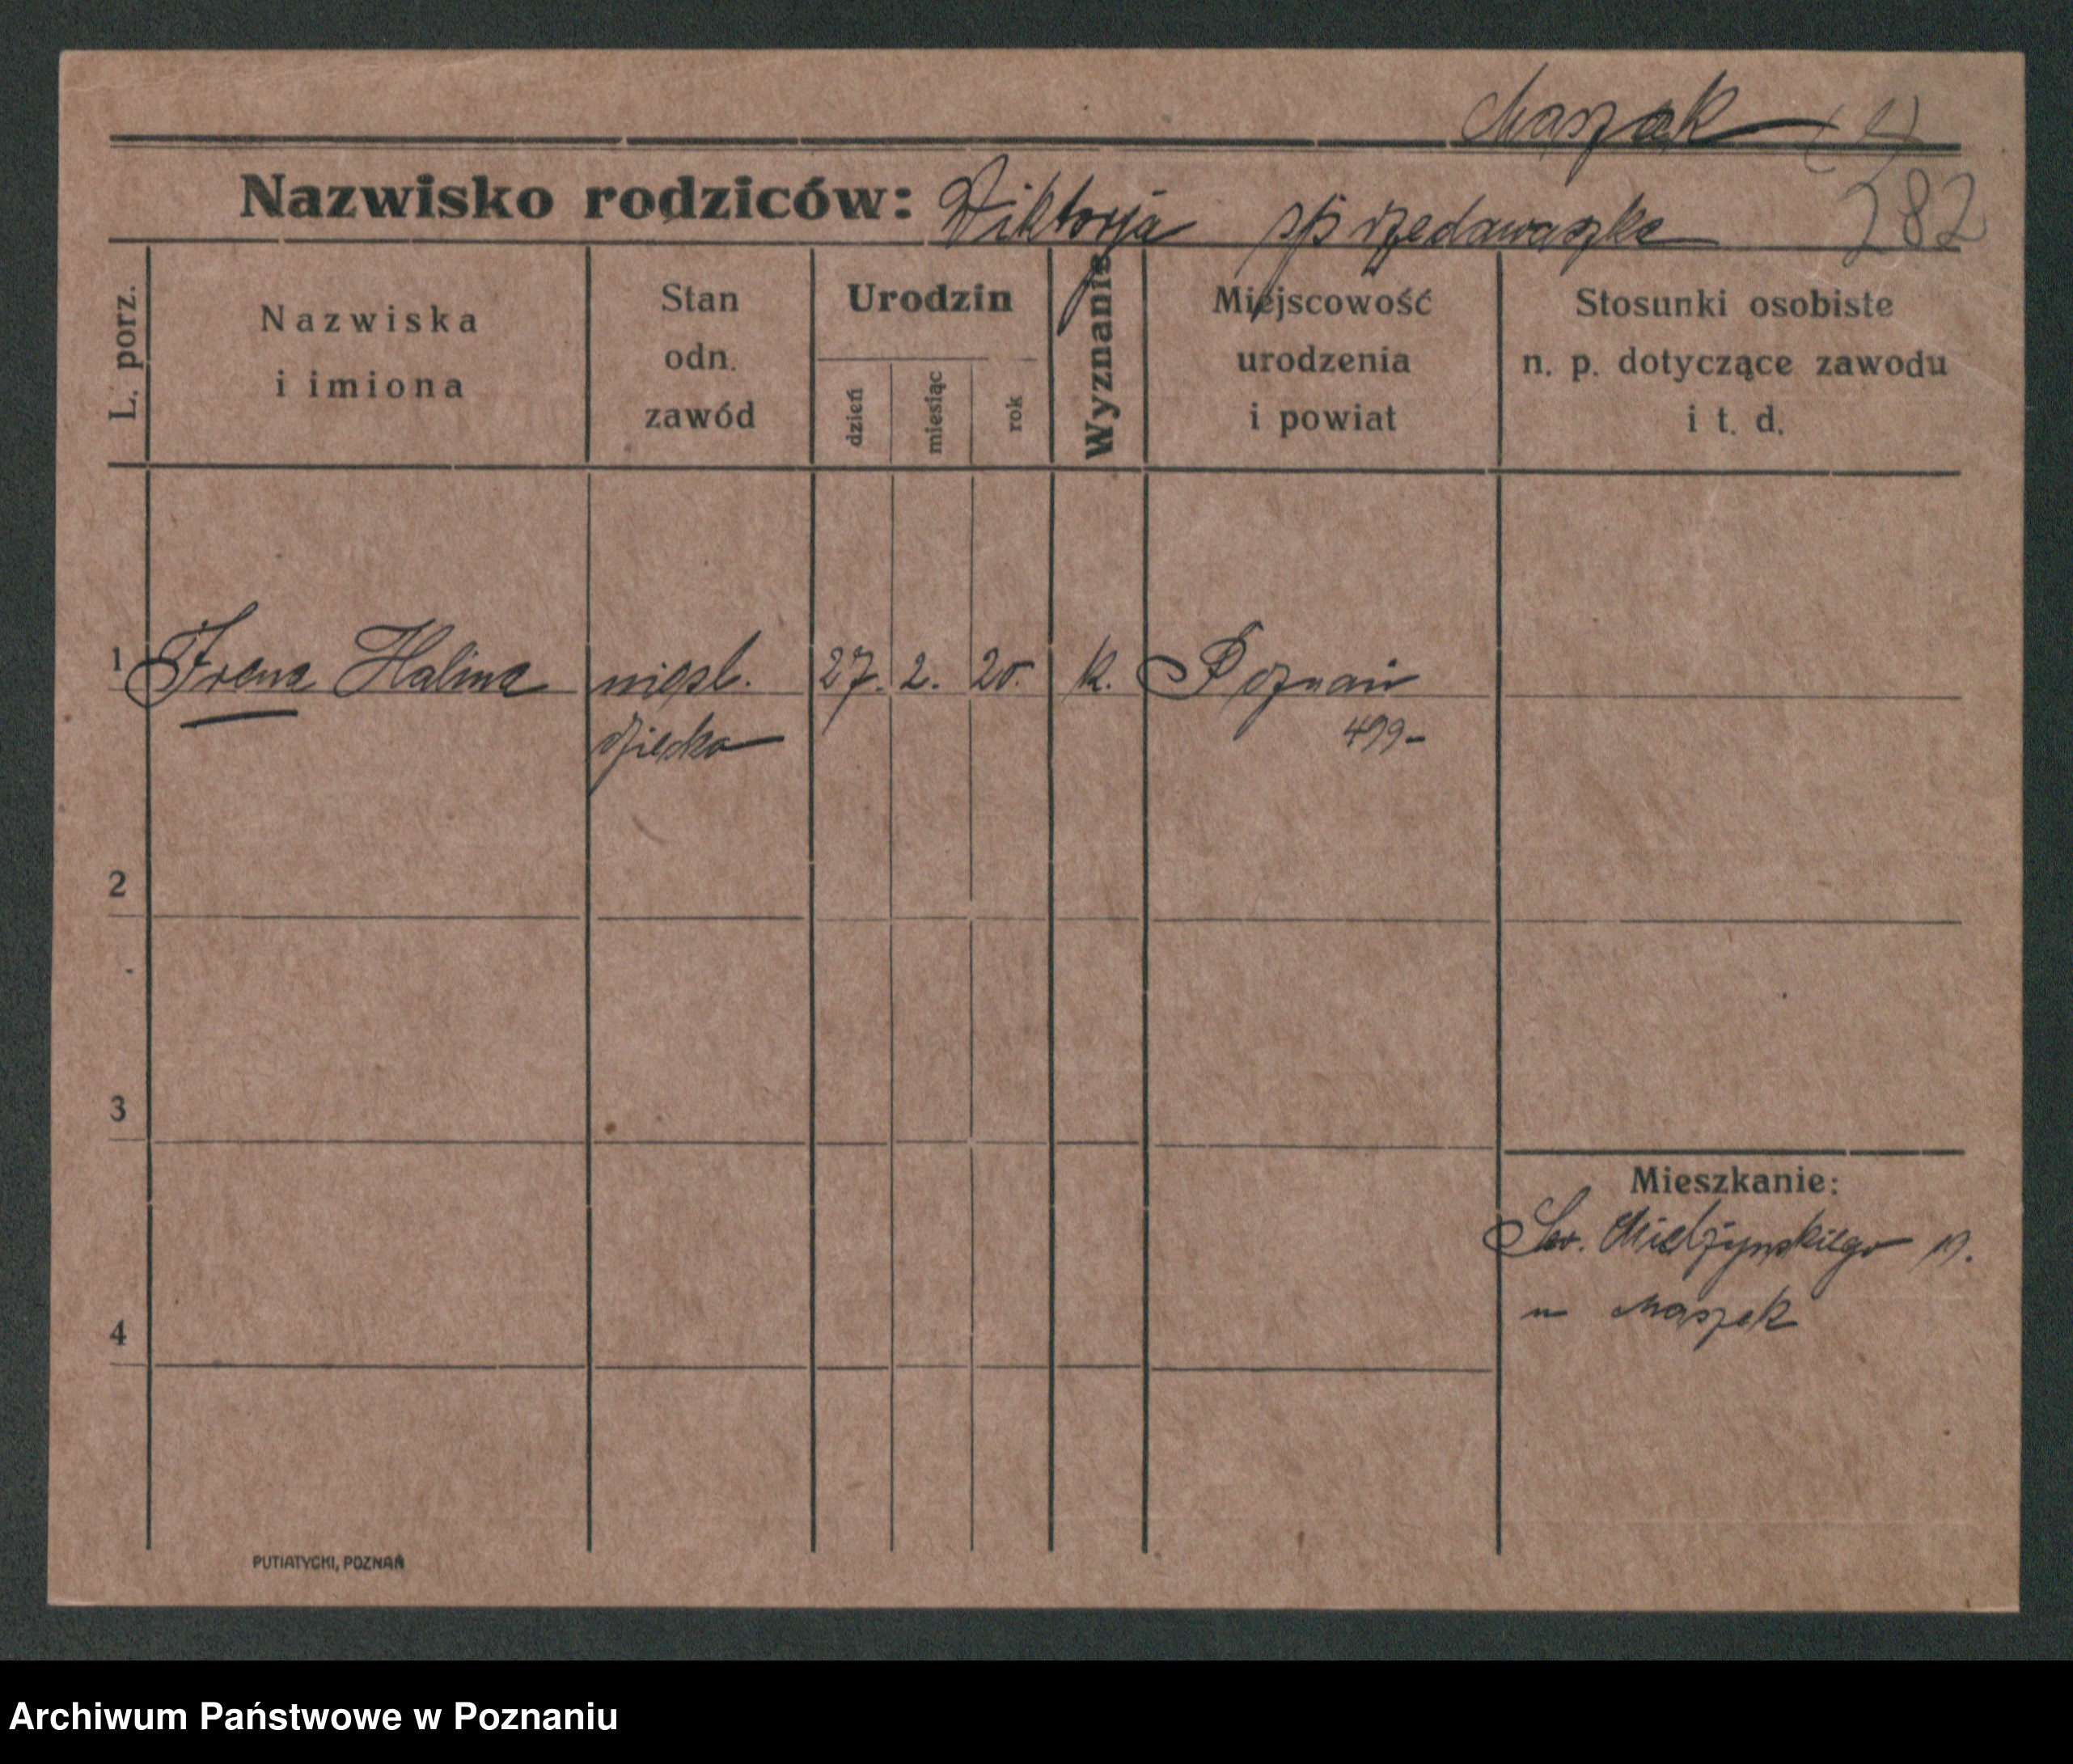 Maszak (1)
Nazwisko rodziców: Wiktorja sprzedawaczka 282
L. porz.
Nazwiska i imiona
Stan odn. zawód
Urodzin
dzień
miesiąc
rok
Wyznanie
Miejscowość urodzenia i powiat
Stosunki osobiste n. p. dotyczące zawodu i t. d.
1 Irena Halina nieśl. 27. 2. 20. k. Poznań
dziecko 499-
2
3
Mieszkanie:
Sew. Mielżyńskiego
u Maszak
4
PUTIATYCKI, POZNAŃ
Archiwum Państwowe w Poznaniu